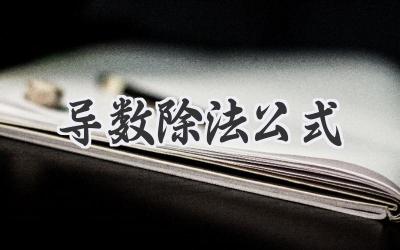 导数除法公式